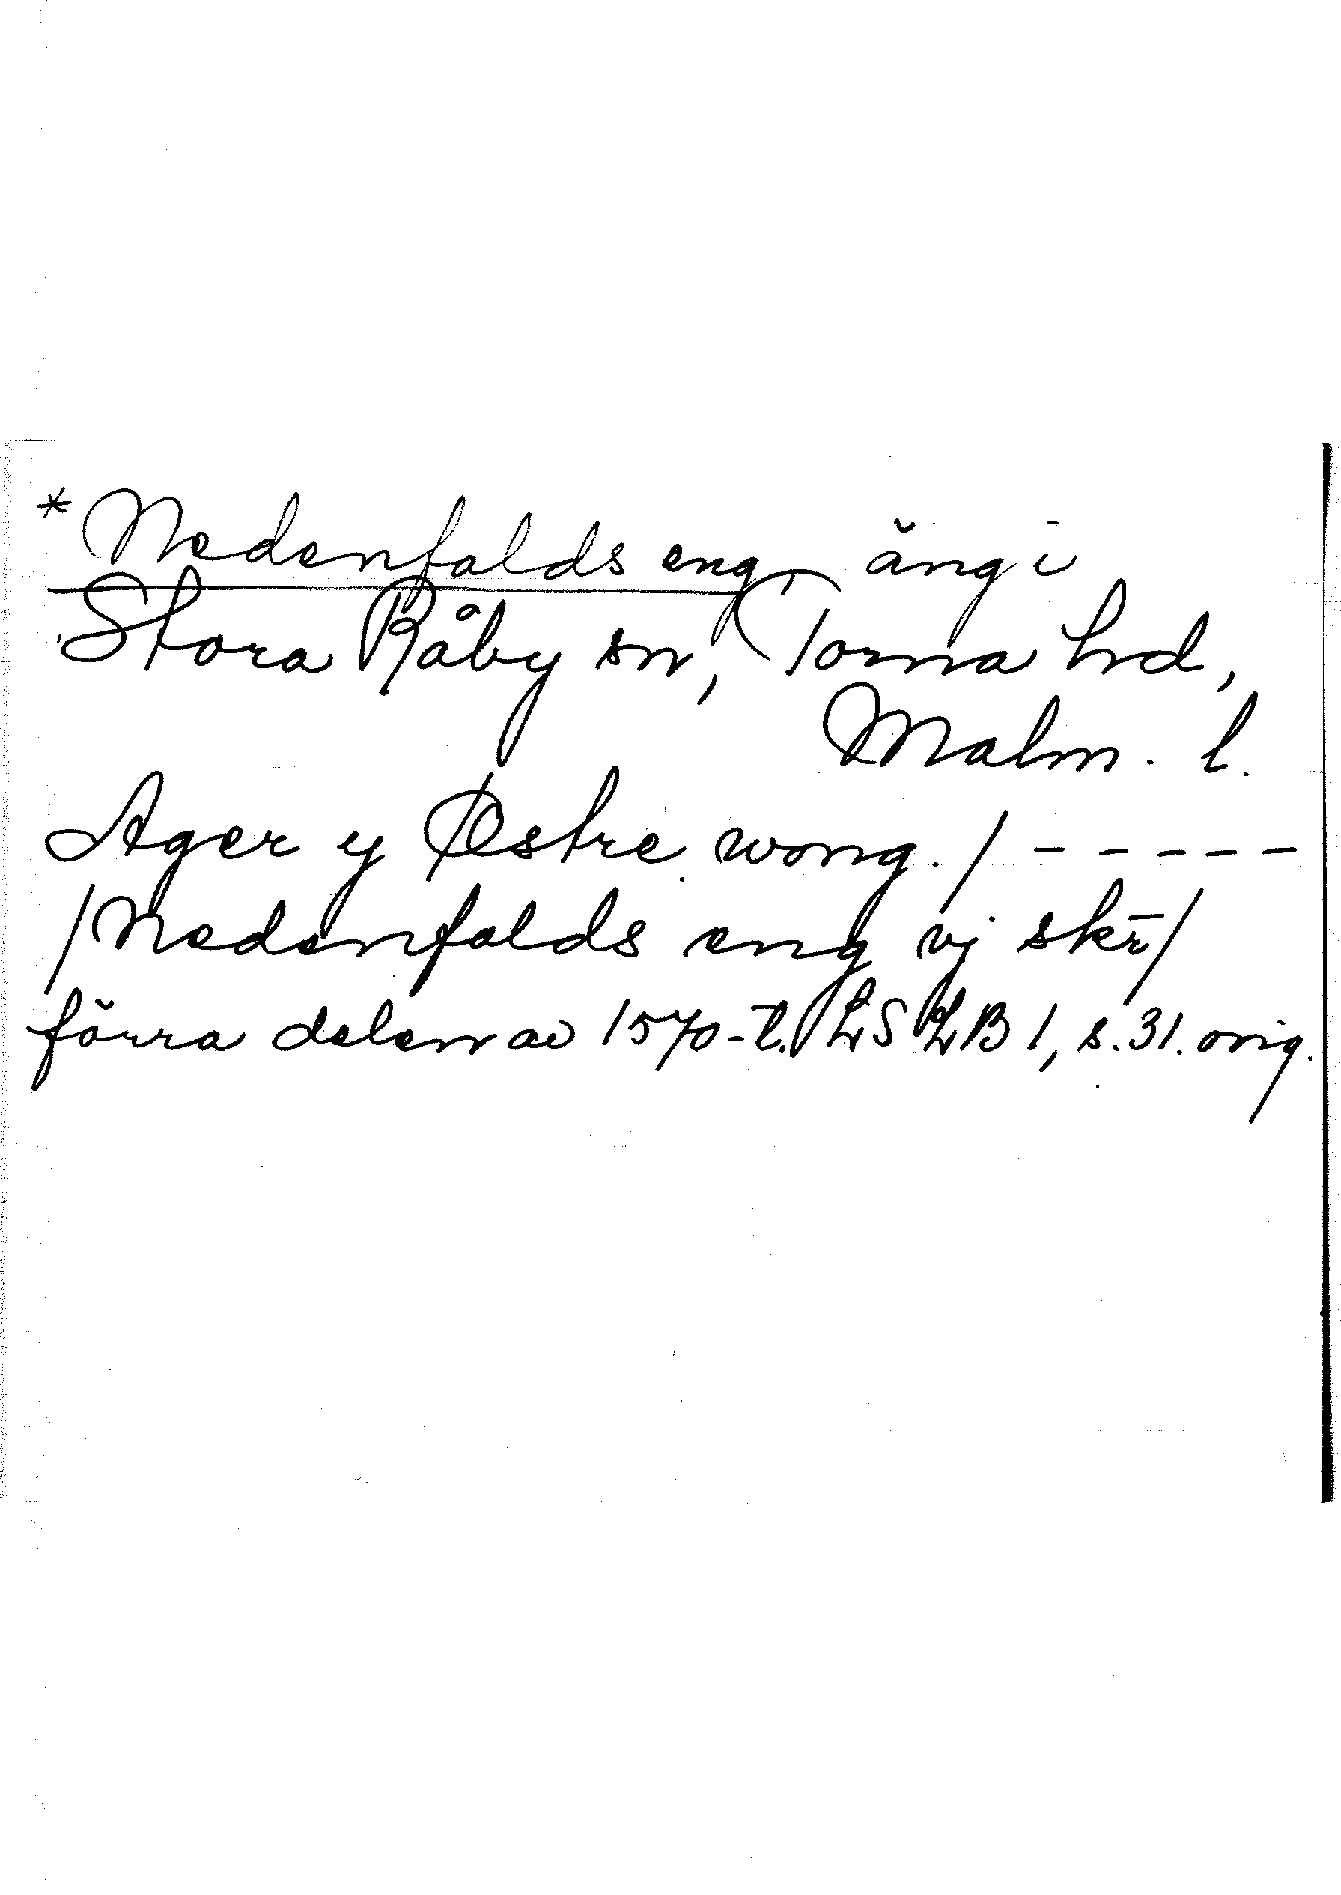 * Nedenfalds eng, äng i
Stora Råby sn, Torna hrd,
Malm. l.
Ager y Østre wong. / - - - - -
/ Nedenfalds eng vj skr̄ /
förra delen av 1570-t. LSLB 1, s. 31. orig.